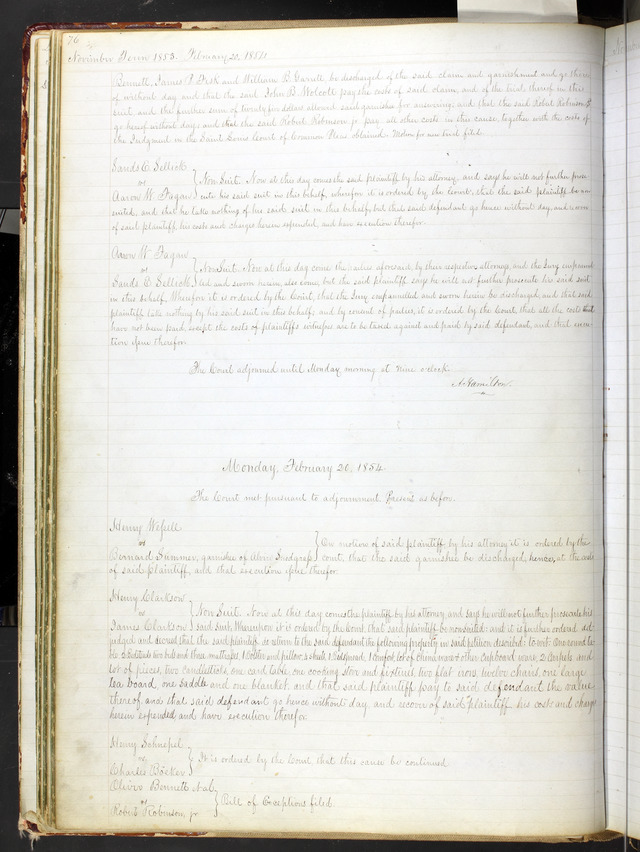 76
November Term 1853. February 20, 1854
Bennett, James P. Fisk and William B. be discharged of the said claim and garnishment and go there
of without day and that the said John B. Wolcott pay the costs of said claim, and of the trial thereof in this
suit and the further sum of twenty five dollars allowed said garnishee for answering, and that the said Robert Robinson, Jr
go hence without day, and that the said Robert Robinson, jr. pay all other costs in this cause, together with the costs of
the Judgment in the Saint Louis Court of Common Pleas obtained. Motion for new trial filed.
Sands C. Sellick
vs
Aaron W. Fagan
Non Suit. Now at this day comes the said plaintiff by his attorney and says he will not further prose
cute his said suit in this behalf, wherefore it is ordered by the Court, that the said plaintiff be non
suited, and that he take nothing of his said suit in this behalf, but that said defendant go hence without day, and recover
of said plaintiff his costs and charges herein expended, and have execution therefor.
Aaron W. Fagan
vs
Sands C. Sellick
Non Suit. Now at this day come the parties aforesaid, by their respective attorneys, and the Jury empannel
led and sworn herein, also come, but the said plaintiff says he will not further prosecute his said suit
in this behalf, Wherefore it is ordered by the Court, that the Jury empannelled and sworn herein be discharged, and that said
plaintiff take nothing by his said suit in this behalf, and by consent of parties, it is ordered by the Court, that all the costs that
have not been paid except the costs of plaintiffs witnesses are to be taxed against and paid by said defendant, and that execu
tion issue therefor.
The Court adjourned until Monday morning at nine o'clock.
A. Hamilton.
Monday, February 20, 1854
The Court met pursuant to adjournment Present as before.
Henry
vs
Bernard Summer, garnishee of Snodgrass
On motion of said plaintiff by his attorney it is ordered by the
court, that the said garnishee be discharged, hence, at the costs
of said plaintiff, and that execution issue therefor.
Henry Clarkson
vs
James Clarkson
Non Suit. Now at this day comes the plaintiff by his attorney and says he will not further prosecute his
said suit, Whereupon it is ordered by the Court that said plaintiff be nonsuited: and it is further ordered, ad
judged and decreed that the said plaintiff, do return to the said defendant the following property in said petition described: to wit: One round ta
ble, 2 bedsteads two beds and three mattresses, 1 bolster and pillow, 2 sheets, 1 bedspread, 1 comfort, lot of chinaware & other cupboard ware, 2 and
lot of pieces, two candlesticks, one card table, one cooking stove and fixtures, two flat irons, twelve chairs, one large
tea board, one saddle and one blanket, and that said plaintiff pay to said defendant the value
thereof, and that said defendant go hence without day, and recover of said plaintiff his costs and charges
herein expended and have execution therefor.
Henry Schnepel
vs
Charles Böcker
It is ordered by the Court, that this cause be continued
Oliver Bennett et al.
vs
Robert Robinson, jr
Bill of Exceptions filed.